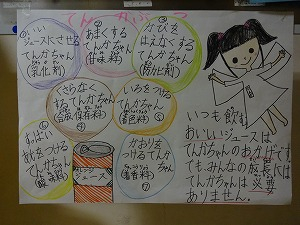 てんかぶつ
①
いい
ジュースにさせる
てんかちゃん
(乳化剤)
②
あまくする
てんかちゃん
(甘味料)
③
かびを
はえなくする
てんかちゃん
(防かび剤)
④
くさらなく
する てんかちゃん
(合成保存料)
⑤
いろをつける
てんかちゃん
(着色料)
すっぱい
あじをつける
てんかちゃん
(酸味料)
ジュース
かおりを
つけるてんか
ちゃん
(香料)
⑦
いつも飲む
おいしいジュースは
てんかちゃんのおかげです。
でも、みんなの成長には
てんかちゃんは必要
ありません。